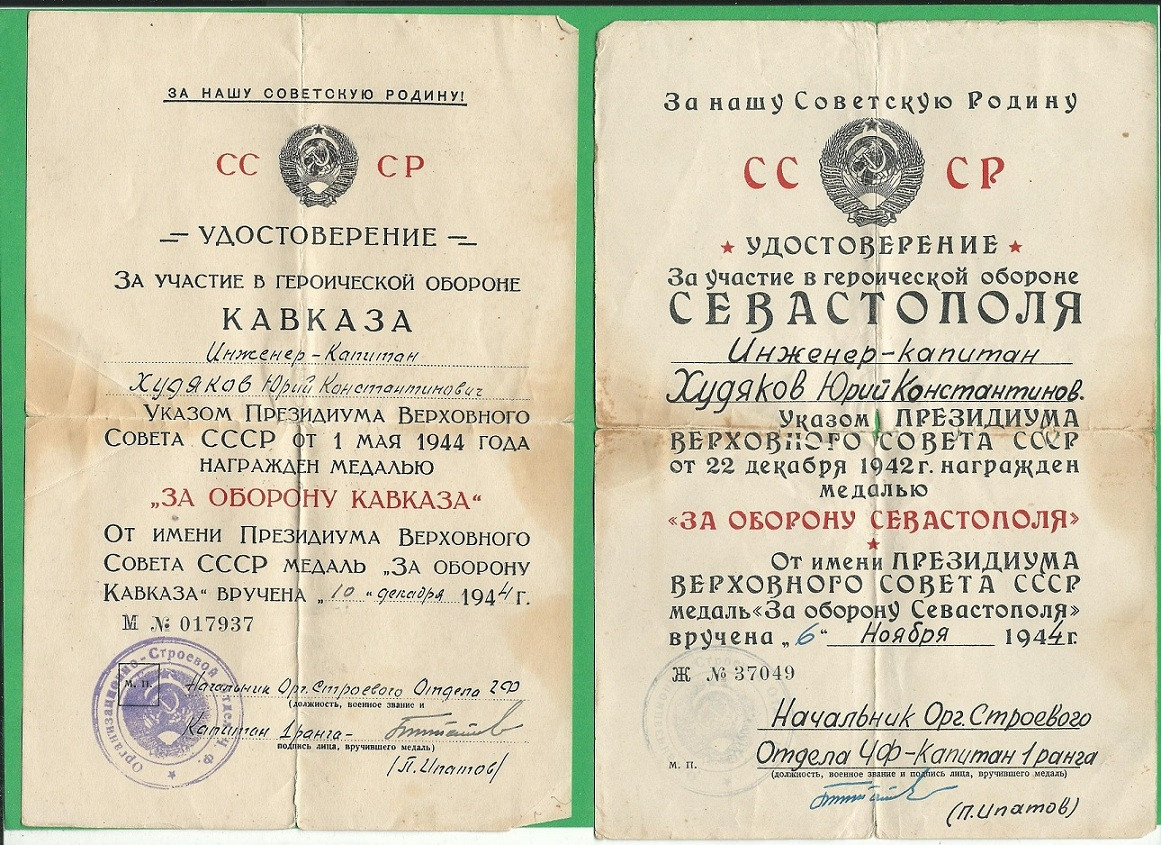 ЗА НАШУ СОВЕТСКУЮ РОДИНУ!
СС СР
УДОСТОВЕРЕНИЕ
ЗА УЧАСТИЕ В ГЕРОИЧЕСКОЙ ОБОРОНЕ
КАВКАЗА
Инженер-Капитан
Худяков Юрий Константинович
УКАЗОМ ПРЕЗИДИУМА ВЕРХОВНОГО
СОВЕТА СССР ОТ 1 МАЯ 1944 ГОДА
НАГРАЖДЕН МЕДАЛЬЮ
„ЗА ОБОРОНУ КАВКАЗА“
ОТ ИМЕНИ ПРЕЗИДИУМА ВЕРХОВНОГО
СОВЕТА СССР МЕДАЛЬ „ЗА ОБОРОНУ
КАВКАЗА“ ВРУЧЕНА „10“ декабря 1944 Г.
М № 017937
Организационно-Строевой Отдел Ч.Ф.
М. П.
Начальник Орг. Строевого Отдела ЧФ
(должность, военное звание и
Капитан 1 ранга-
подпись лица, вручившего медаль)
(П. Ипатов)
За нашу Советскую Родину
СС СР
УДОСТОВЕРЕНИЕ
За участие в героической обороне
СЕВАСТОПОЛЯ
Инженер-капитан
Худяков Юрий Константинов.
Указом ПРЕЗИДИУМА
ВЕРХОВНОГО СОВЕТА СССР
от 22 декабря 1942 г. награжден
медалью
«ЗА ОБОРОНУ СЕВАСТОПОЛЯ»
От имени ПРЕЗИДИУМА
ВЕРХОВНОГО СОВЕТА СССР
медаль «За оборону Севастополя»
вручена „6“ Ноября 1944 г.
Ж № 37049
Начальник Орг. Строевого
Отдела ЧФ-Капитан 1 ранга
М. П.
(должность, военное звание и подпись лица, вручившего медаль)
(П. Ипатов)